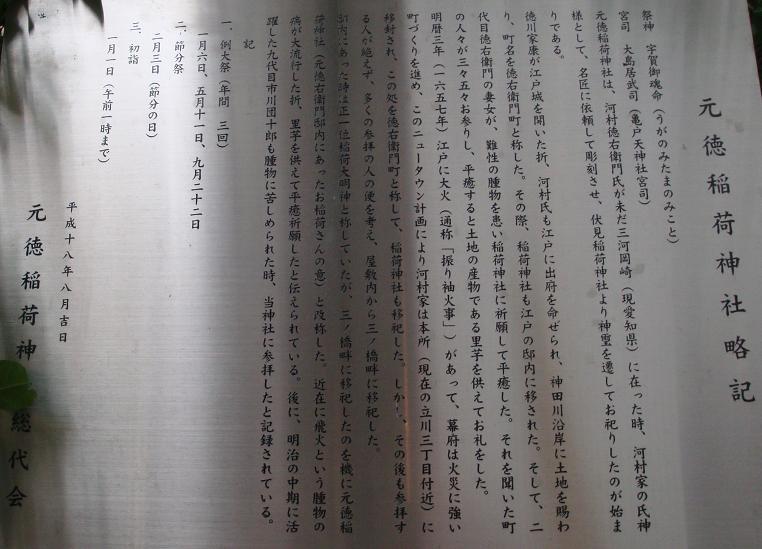 元徳稲荷神社略記
祭神 宇賀御魂命(うがのみたまのみこと)
宮司 大島居武司(亀戸天神社宮司)
元徳稲荷神社は、河村徳右衛門氏が未だ三河岡崎(現愛知県)に在った時、河村家の氏神
様として、名匠に依頼して彫刻させ、伏見稲荷神社より神璽を遷してお祀りしたのが始ま
りである。
徳川家康が江戸城を開いた折、河村氏も江戸に出府を命ぜられ、神田川沿岸に土地を賜わ
り、町名を徳右衛門町と称した。その際、稲荷神社も江戸の邸内に移された。そして、二
代目徳右衛門の妻女が、難性の腫物を患い稲荷神社に祈願して平癒した。それを聞いた町
の人々が三々五々お参りし、平癒すると土地の産物である里芋を供えてお礼をした。
明暦三年(一六五七年)江戸に大火(通称「振り袖火事」)があって、幕府は火災に強い
町づくりを進め、このニュータウン計画により河村家は本所(現在の立川三丁目付近)に
移封され、この処を徳右衛門町と称して、稲荷神社も移祀した。しかし、その後も参拝す
る人が絶えず、多くの参拝の人の便を考え、屋敷内から三ノ橋畔に移祀した。
邸内にあった時は正一位稲荷大明神と称していたが、三ノ橋畔に移祀したのを機に元徳稲
荷神社(元徳右衛門邸内にあったお稲荷さんの意)と改称した。近在に飛火という腫物の
病が大流行した折、里芋を供えて平癒祈願したと伝えられている。後に、明治の中期に活
躍した九代目市川団十郎も腫物に苦しめられた時、当神社に参拝したと記録されている。
記
一、例大祭(年間 三回)
一月六日、五月十一日、九月二十二日
二、節分祭
二月三日(節分の日)
三、初詣
一月一日(午前一時まで)
平成十八年八月吉日
元徳稲荷神 総代会